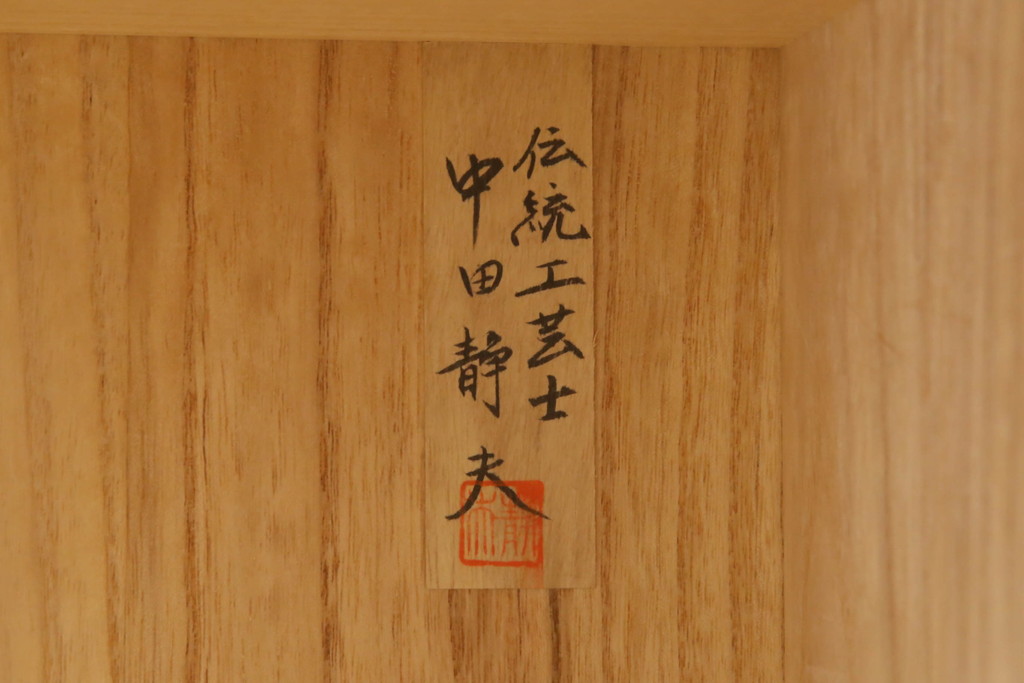 伝統工芸士
中田静夫
静夫